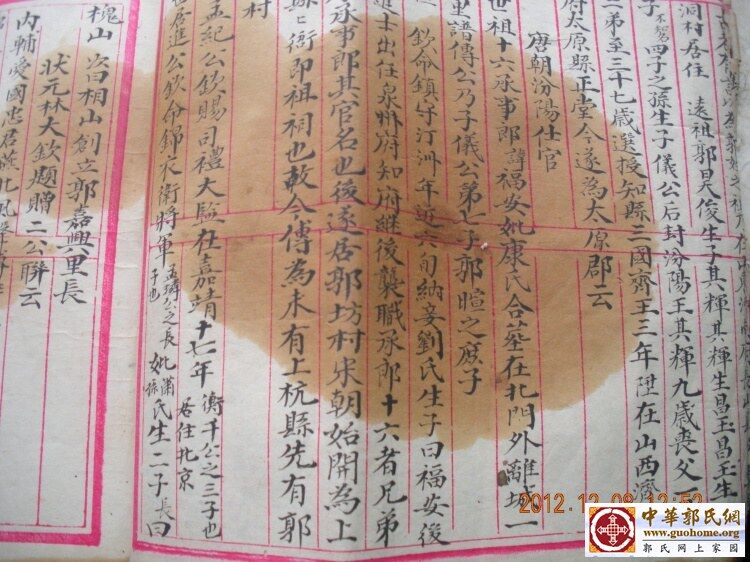 洞村居住 遠祖郭昊俊生子其輝其輝生昌玉昌玉生
子不駕四子之孫生子儀公后封汾陽王其輝九歲喪父
二弟至三十七歲選授知縣三國齊王三年陞在山西濟
府太原縣正堂今遂為太原郡云
唐朝汾陽仕官
世祖十六承事郎諱福安妣康氏合墓在北門外離城一
重譜傳公乃子儀公弟七子郭暄之庶子
欽命鎮守汀洲年近六旬納妾劉氏生子曰福安後
進士出任泉州府知府継後襲職承郎十六者兄弟
承事郎其官名也後遂居郭坊村宋朝始開為上
縣衙即祖祠也故今傳為未有上杭縣先有郭
村
孟紀公欽賜司禮大監在嘉靖十七年 衡千公之三子也 居住北京
居進公欽命錦衣衛將軍 孟璹公之長子也 妣蕭氏 孫氏 生二子長曰
槐山 當相山創立郭嘉興里長
狀元林大欽題贈二公聯云
內輔愛國忠君
2012.12.08 12:52
中華郭氏網
www.guohome.org
郭氏網上家園